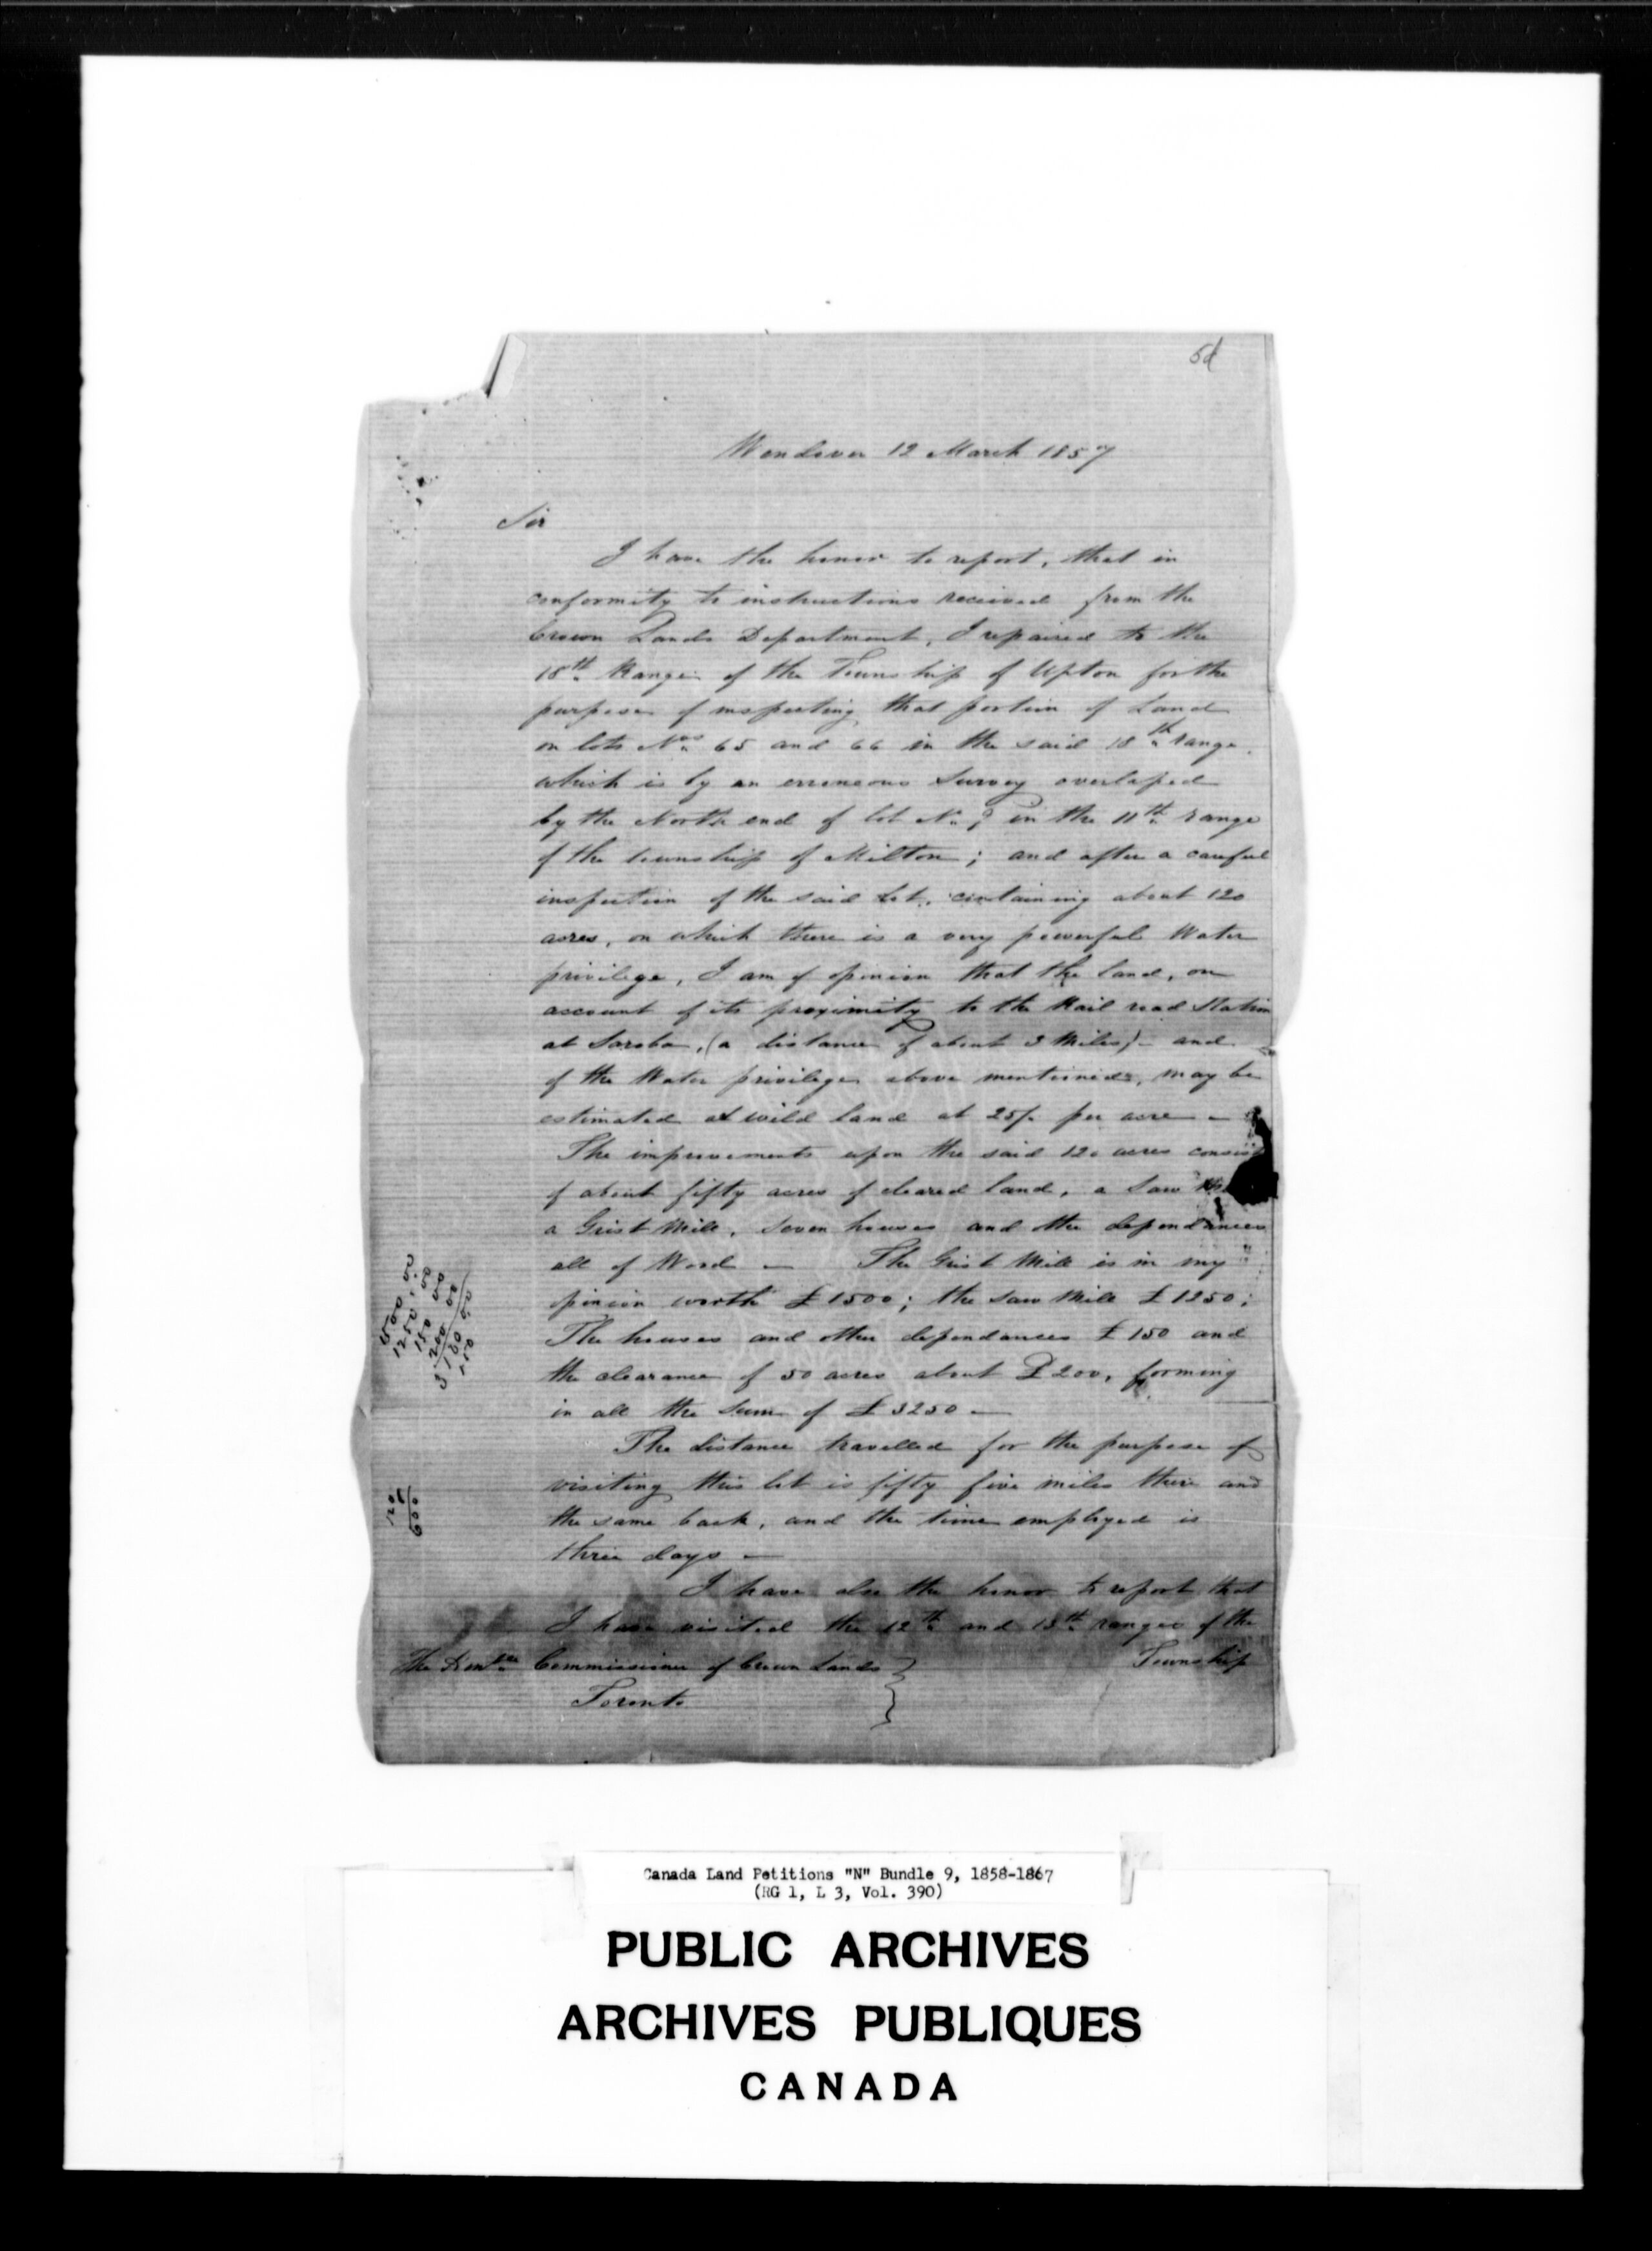 5d
Wendover 12 March 1857
Sir
I have the honor to report, that in
conformity to instructions received from the
Crown Lands Department, I repaired to the
18th Range of the Township of Upton for the
purpose of inspecting that portion of Land
on lots Nos 65 and 66 in the said 18th range,
which is by an erroneous Survey overlaped
by the North end of lot No in the 11th range
of the township of Milton; and after a careful
inspection of the said Lot, containing about 120
acres, on which there is a very powerful Water
privilege, I am of opinion that the land, on
account of its proximity to the Rail road Station
at, (a distance of about 3 Miles) - and
of the Water privilege above mentioned, may be
estimated at wild land at 25/- per acre -
The improvements upon the said 120 acres consist
of about fifty acres of cleared land, a Saw
a Grist Mill, seven houses and other dependances
all of Wood - The Grist Mill is in my
opinion worth £1500; the Saw Mill £1250;
The houses and other dependances £150 and
the clearance of 50 acres about £200, forming
in all the Sum of £3250 -
The distance travelled for the purpose of
visiting this lot is fifty five miles there and
the same back, and the time employed is
three days -
I have also the honor to report that
I have visited the 12th and 13th ranges of the
Township
The Honble Commissioner of Crown Lands
Toronto
1500
1250
150
200
3100
150
120
600
Canada Land Petitions "N" Bundle 9, 1858-1867
(RG 1, L 3, Vol. 390)
PUBLIC ARCHIVES
ARCHIVES PUBLIQUES
CANADA